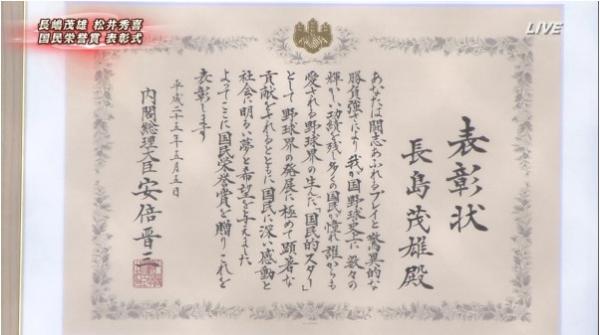 長嶋茂雄 松井秀喜
国民栄誉賞 表彰式
LIVE
表彰状
長島茂雄殿
あなたは闘志あふれるプレイと驚異的な
勝負強さにより我が国野球史に数々の
輝かしい功績を残し多くの国民が憧れ誰からも
愛される野球界の生んだ「国民的スター」
として野球界の発展に極めて顕著な
貢献をされるとともに国民に深い感動と
社会に明るい夢と希望を与えました
よってここに国民栄誉賞を贈りこれを
表彰します
平成二十五年五月五日
内閣総理大臣 安倍晋三